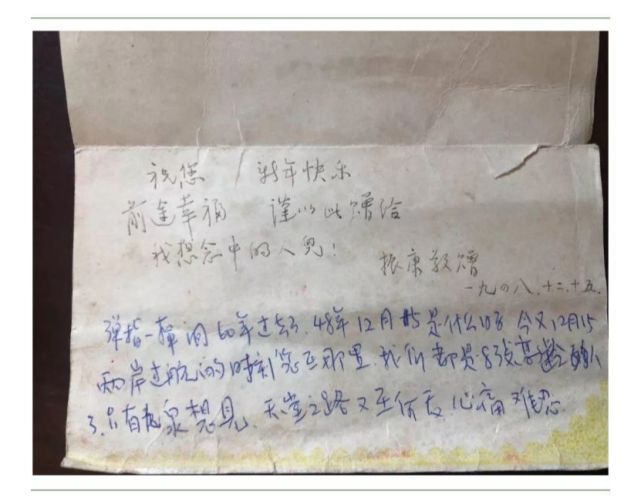 祝您 新年快乐
前途幸福 谨以此赠给
我想念中的人儿!
振康敬赠
一九四八.十二.十五.
弹指一挥间60年过去了.48年12月15是什么日子 今又12月15
两岸通航的时刻您在那里.我们都是8旬高龄的人
了.只有九泉想见.天堂之路又在何方.心痛难忍